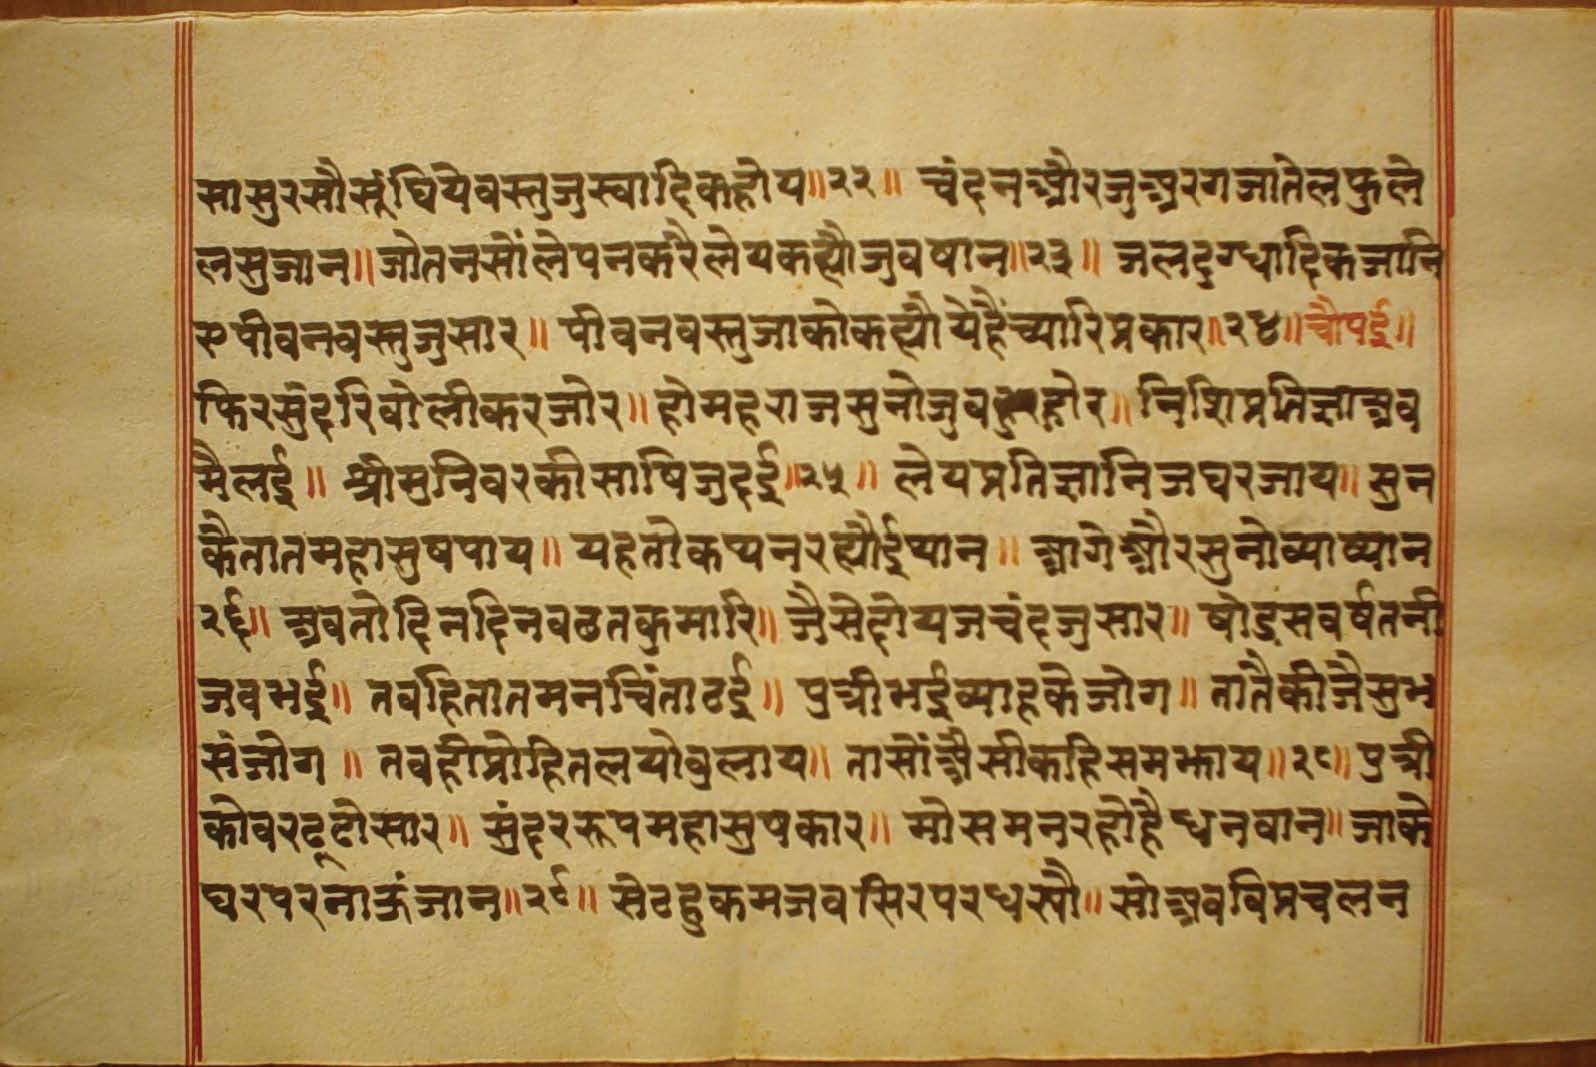 सासुरसौसूंघियेवस्तुजुस्वादिकहोय॥२२॥ चंदनऔरजुअरगजातेलफुले
लसुजान॥जोतनसोंलेपनकरैलेयकह्यौजुवषान॥२३॥ जलदुग्धादिकजानि
रुपीवनवस्तुजुसार॥ पीवनवस्तुजाकोकह्यौयेहैंच्यारिप्रकार॥२४॥चौपई॥
फिरसुंदरिवोलीकरजोर॥होमहराजसुनोजुवहुरहोर॥निशिप्रतिज्ञाअव
मैलई॥ श्रीमुनिवरकीसाषिजुदई॥२५॥ लेयप्रतिज्ञानिजघरजाय॥सुन
कैतातमहासुषपाय॥ यहतोकथ्यनरह्यौईथान॥ आगेऔरसुनोव्याष्यान
२६॥ अवतोदिनदिनवढतकुमारि॥जैसेहोयजचंदजुसार॥ षोडसवर्षतनी
जवभई॥ तवहितातमनचिंताठई॥ पुत्रीभईव्याहकेजोग॥ तातैकीजैसुभ
संजोग॥ तवहीप्रोहितलयोवुलाय॥ तासोंअैसीकहिसमझाय॥२८॥पुत्री
कोवरढूढोसार॥ सुंदररूपमहासुषकार॥ मोसमनरहोहैधनवान॥जाके
घरपरनाऊंजान॥२९॥ सेठहुकमजवसिरपरधर्यौ॥सोअवविप्रचलन